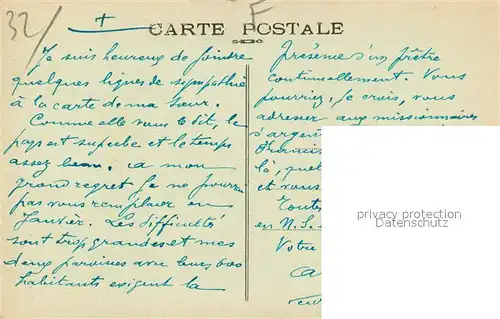 32/
+
F
CARTE POSTALE
Je suis heureux de joindre
quelques lignes de sympathie
à la carte de ma sœur.
Comme elle vous le dit, le
pays est superbe et le temps
assez beau. à mon
grand regret je ne pourrai
pas vous remplacer en
Janvier. Les difficultés
sont trop grandes et mes
deux paroisses avec leurs 600
habitants exigent la
présence d'un prêtre
continuellement. Vous
pourriez, je crois, vous
adresser aux missionnaires
s'argen
Francis
là, quel
et vous
Toutes
en N.S.
Votre
privacy protection
Datenschutz